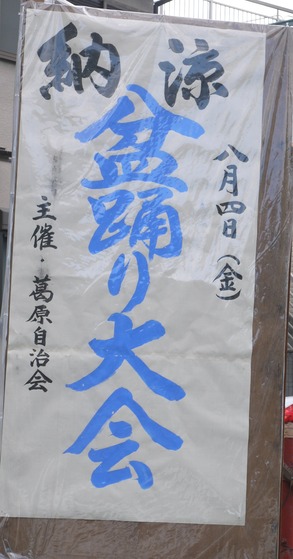 納涼
盆踊り大会
八月四日(金)
主催・葛原自治会